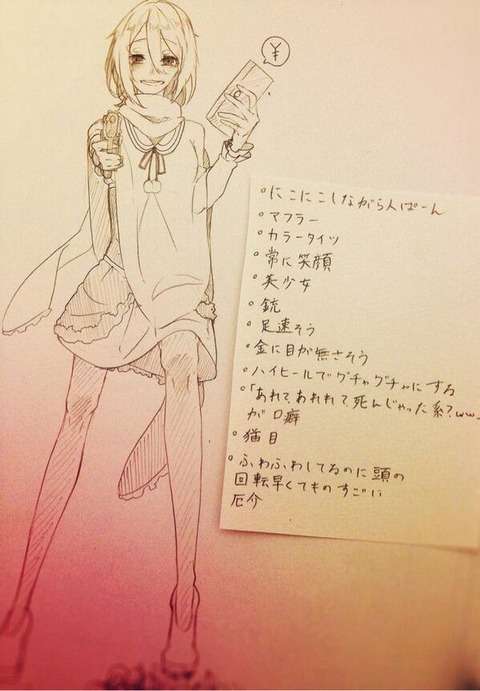 ¥
°にこにこしながら人ぱーん
°マフラー
°カラータイツ
°常に笑顔
°美少女
°銃
°足速そう
°金に目が無さそう
°ハイヒールでグチャグチャにする
°「あれて、あれれて死んじゃった系?ww」
が口癖
°猫目
°ふわふわしてるのに頭の
回転早くてものすごい
厄介